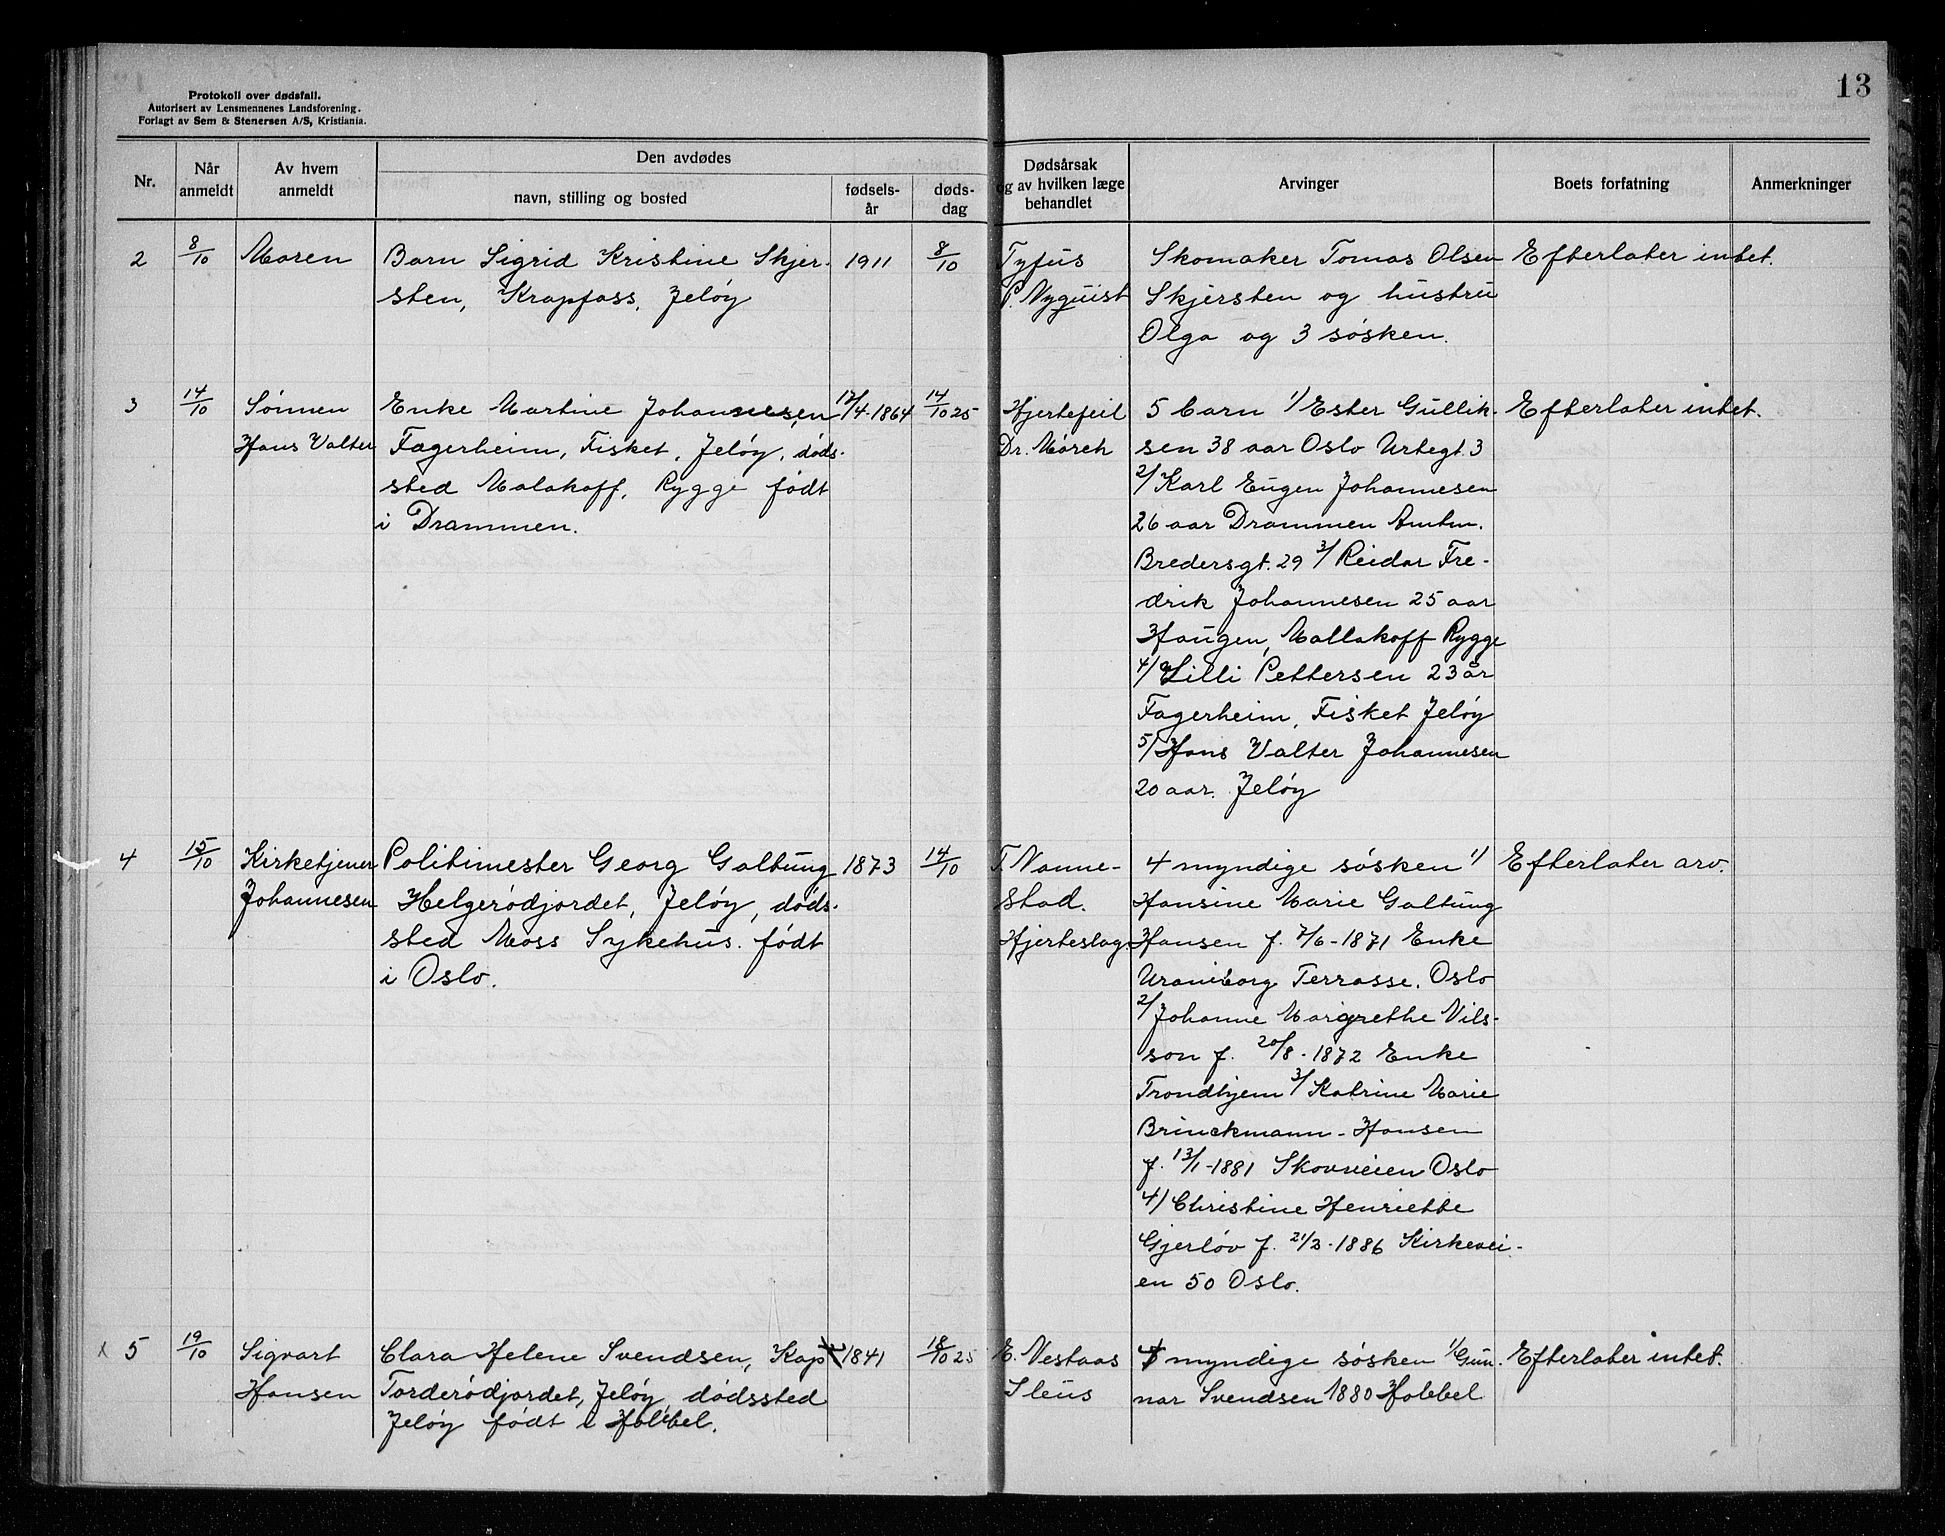 Protokoll over dødsfall.
Autorisert av Lensmennenes Landsforening.
Forlagt av Sem & Stenersen A/S, Kristiania.
13
Nr.
Når
anmeldt
Av hvem
anmeldt
Den avdødes
navn, stilling og bosted
fødsels-
år
døds-
dag
Dødsårsak
og av hvilken læge
behandlet
Arvinger
Boets forfatning
Anmerkninger
2
8/10
Moren
Barn Sigrid Kristine Skjer-
sten, Krapfoss, Jeløy
1911
8/10
Tyfus
P. Nyquist
Skomaker Tomas Olsen
Skjersten og hustru
Olga og 3 søsken.
Efterlater intet.
3
14/10
Sønnen
Hans Valter
Enke Martine Johannesen
Fagerheim, Fisket, Jeløy, døds-
sted Malakoff, Rygge født
i Drammen.
12/4-1864
14/10 25
Hjertefeil
Dr. Mørch
5 barn 1/ Ester Gullik-
sen 38 aar Oslo Urtegt. 3
2/ Karl Eugen Johannesen
26 aar Drammen Amtm.
Bredersgt. 29 3/ Reidar Fre-
drik Johannesen 25 aar
Haugen, Mallakoff Rygge
4/ Lilli Pettersen 23 år
Fagerheim, Fisket Jeløy
5/ Hans Valter Johannesen
20 aar. Jeløy
Efterlater intet.
4
15/10
Kirketjener
Johannesen
Politimester Georg Galtung
Helgerødjordet, Jeløy, døds-
sted Moss Sykehus. født
i Oslo.
1873
14/10
T. Nanne-
stad.
Hjerteslag.
4 myndige søsken 1/
Hansine Marie Galtung
Hansen f. 7/6-1871 Enke
Uranieborg Terrasse. Oslo
2/ Johanne Margrethe Nils-
son f. 20/8-1872 Enke
Trondhjem 3/ Katrine Marie
Brinckmann-Hansen
f. 13/1-1881 Skovveien Oslo
4/ Christine Henriette
Gjerløv f. 21/3-1886 Kirkevei-
en 50 Oslo.
Efterlater arv.
x 5
19/10
Sigvart
Hansen
Clara Helene Svendsen, Kap
Torderødjordet, Jeløy, dødssted
Jeløy født i Hobbel.
1841
18/10 25
E. Vestaas
Ileus
myndige søsken 1/ Gun-
nar Svendsen 1880 Hobbel
Efterlater intet.